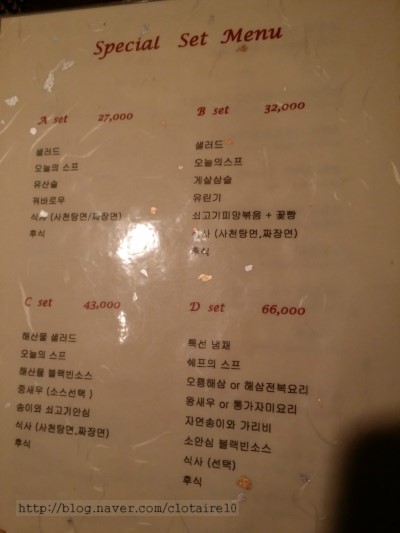 Special Set Menu
A set 27,000
샐러드
오늘의 스프
유산슬
꿔바로우
식사 (사천탕면/짜장면)
후식
B set 32,000
샐러드
오늘의스프
게살삼슬
유린기
쇠고기피망볶음 + 꽃빵
식사 (사천탕면,짜장면)
후식
C set 43,000
해산물 샐러드
오늘의 스프
해산물 블랙빈소스
중새우 (소스선택 )
송이와 쇠고기안심
식사 (사천탕면,짜장면)
후식
D set 66,000
특선 냉채
쉐프의 스프
오룡해삼 or 해삼전복요리
왕새우 or 통가자미요리
자연송이와 가리비
소안심 블랙빈소스
식사 (선택)
후식
http://blog.naver.com/clotaire10